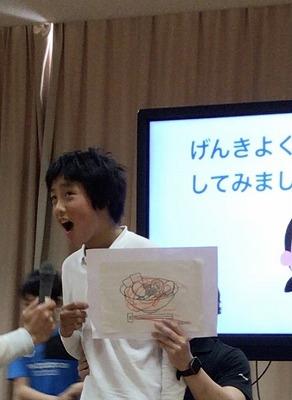 げんきよく
してみまし